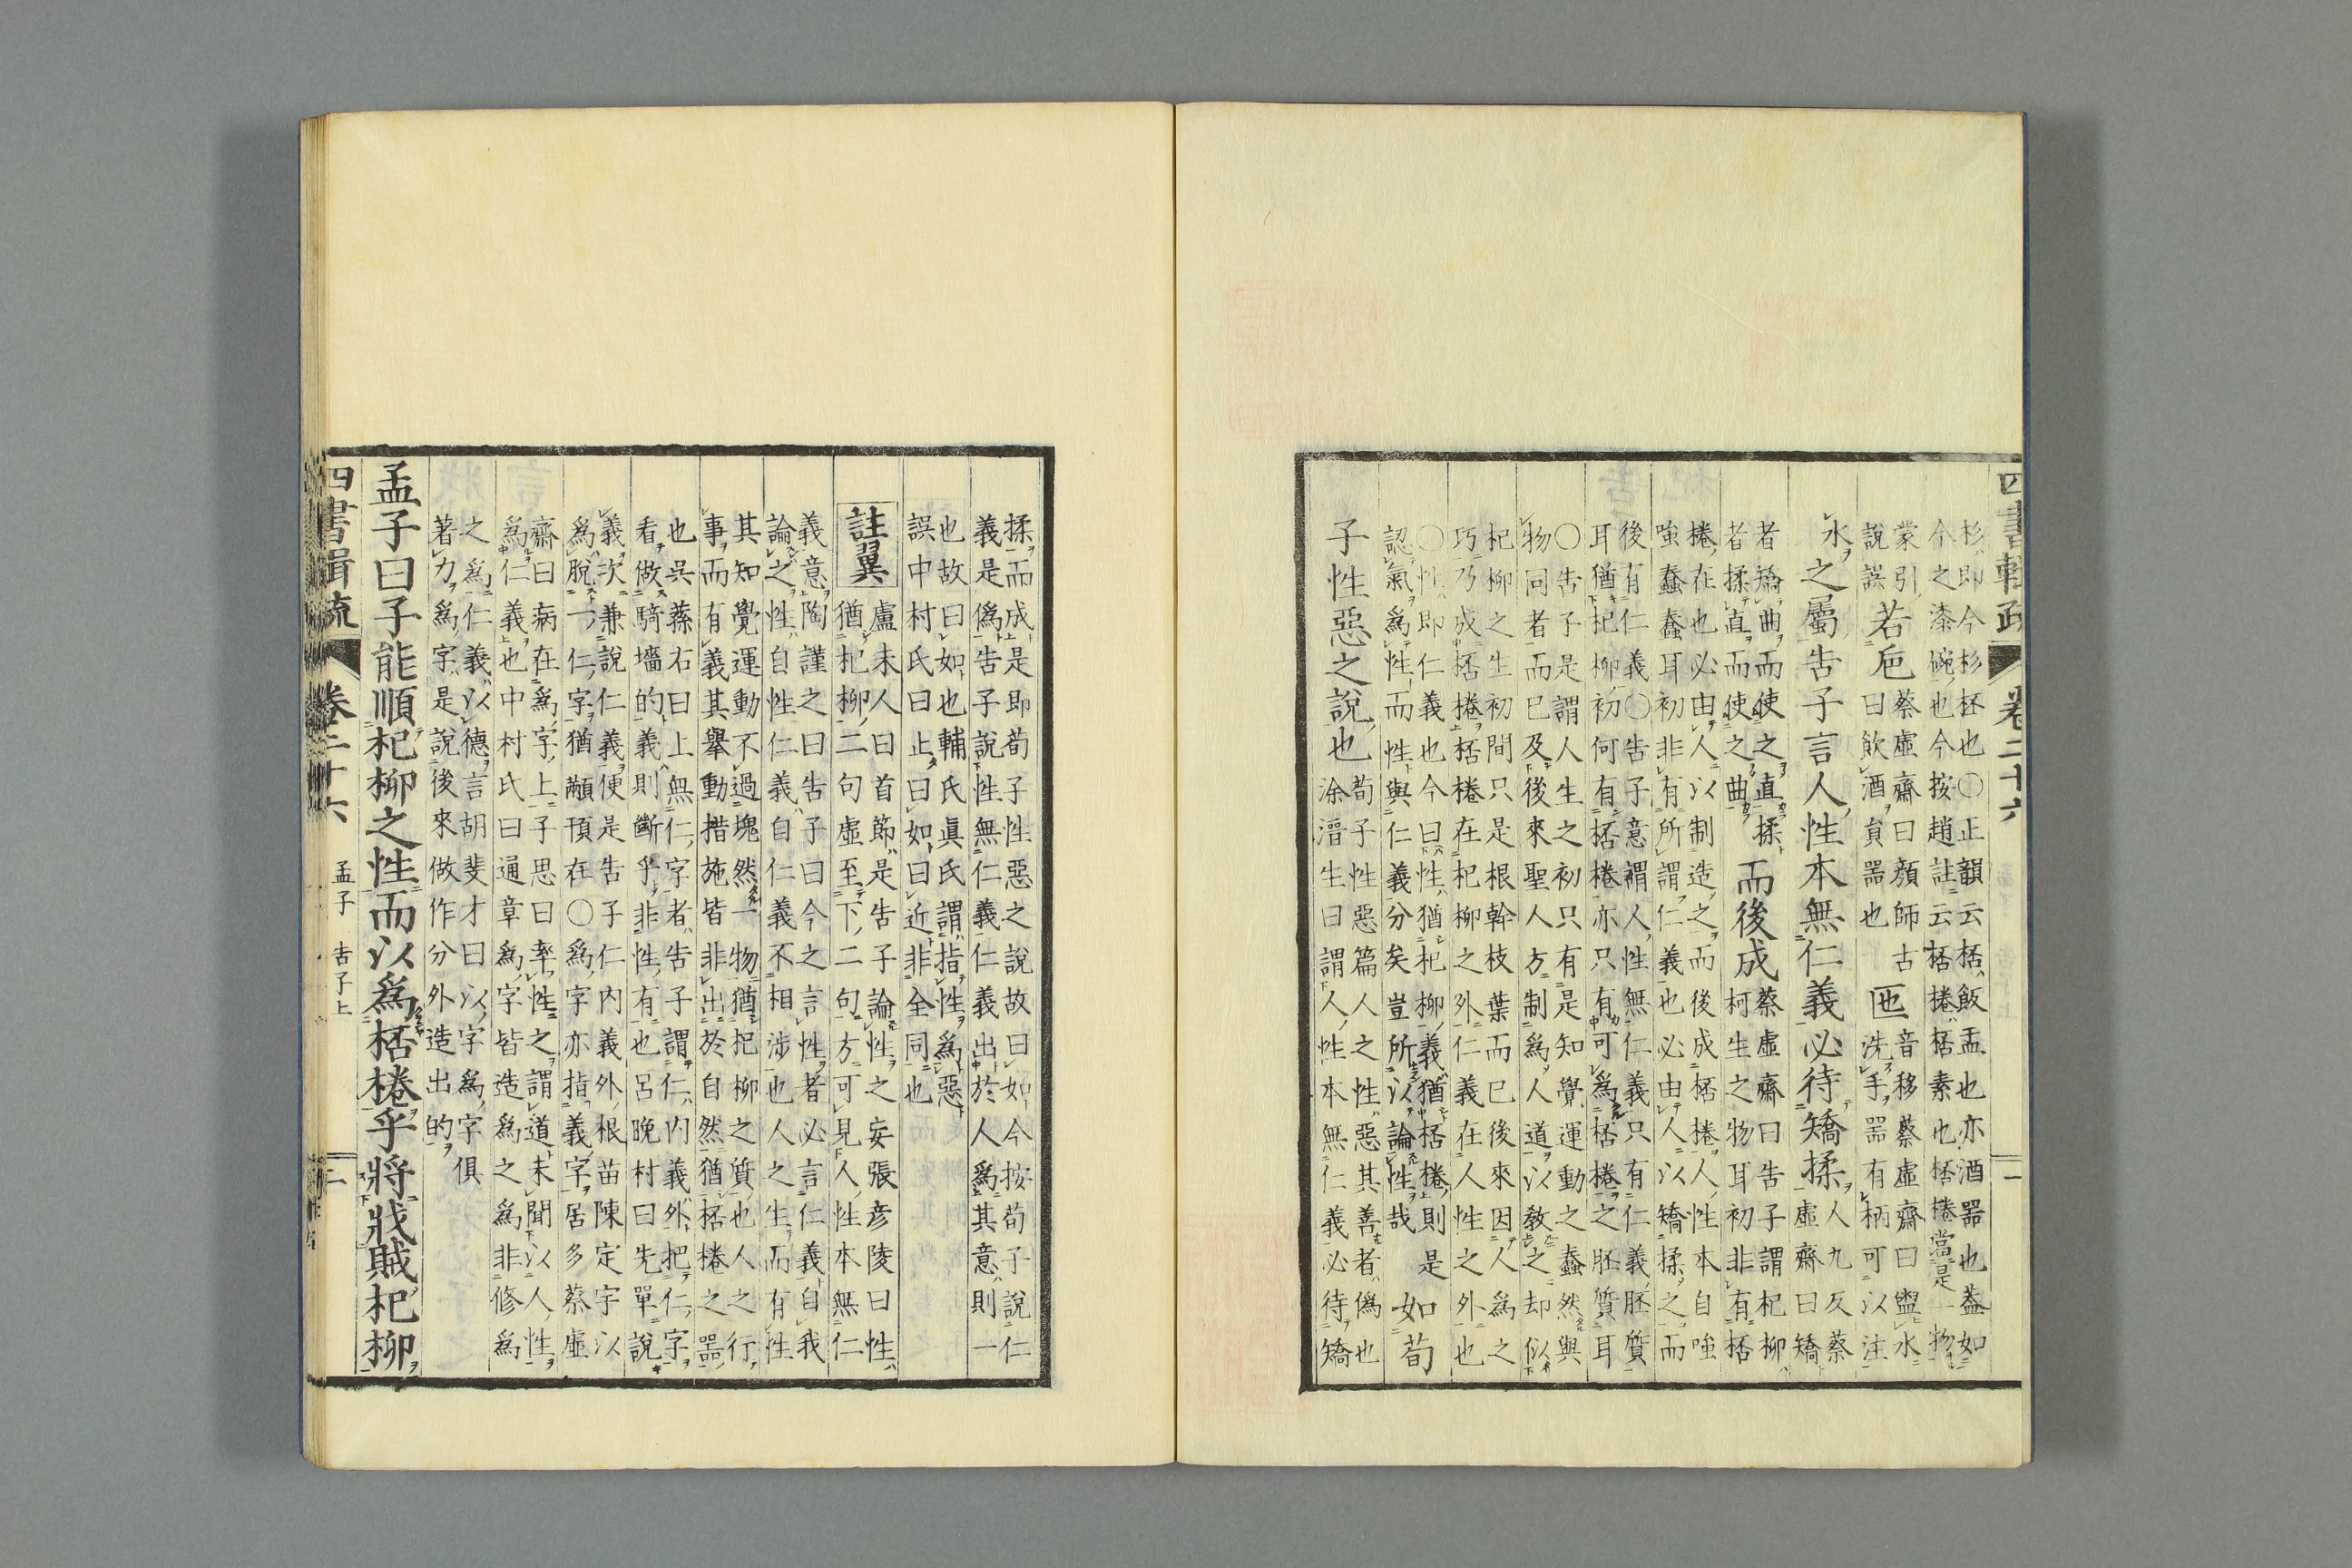 四書輯疏 卷二十六 一
杉即今杉柸也〇正韻云桮飯盂也亦酒器也盖如
今之漆碗也今按趙註云桮棬桮素也桮棬當是一物
蒙引
說誤
若巵
蔡虛齋曰顔師古
曰飲酒貟器也
匜
音移蔡虛齋曰盥水
洗手器有柄可以注
水
之屬告子言人性本無仁義必待矯揉
人九反蔡
虛齋曰矯
者矯曲而使之直揉
者揉直而使之曲
而後成
蔡虛齋曰告子謂杞柳
柯生之物耳初非有桮
棬在也必由人以制造之而後成桮棬人性本自
蚩蠢蠢耳初非有所謂仁義也必由人以矯揉之而
後有仁義〇告子意謂人性無仁義只有仁義胚質
耳猶杞柳初何有桮棬亦只有可爲桮棬之胚質耳
〇告子是謂人生之初只有是知覺運動之蠢然與
物同者而已及後來聖人方制爲人道以敎之却似
杞柳之生初間只是根幹枝葉而已後來因人爲之
巧乃成桮棬桮棬在杞柳之外仁義在人性之外也
〇性即仁義也今曰性猶杞柳義猶桮棬則是
認氣爲性而性與仁義分矣豈所以論性哉
如荀
子性惡之說也
荀子性惡篇人之性惡其善者僞也
涂溍生曰謂人性本無仁義必待矯
揉而成是即荀子性惡之說故曰如今按荀子說仁
義是僞告子說性無仁義仁義出於人爲其意則一
也故曰如也輔氏眞氏謂指性爲惡
誤中村氏曰止曰如曰近非全同也
註翼
盧未人曰首節是告子論性之妄張彦陵曰性
猶杞柳二句虛至下二句方可見人性本無仁
義意陶謹之曰告子曰今之言性者必言仁義自我
論之性自性仁義自仁義不相涉也人之生而有性
其知覺運動不過塊然一物猶杞柳之質也人之行
事而有義其擧動措施皆非出於自然猶桮棬之器
也呉蓀右曰上無仁字者告子謂仁内義外把仁字
看做騎墻的義則斷乎非性有也呂晩村曰先單說
義次兼說仁義便是告子仁内義外根苗陳定宇以
爲脫一仁字猶顢頇在〇爲字亦指義字居多蔡虛
齋曰病在爲字上子思曰率性之謂道未聞以人性
爲仁義也中村氏曰通章爲字皆造爲之爲非修爲
之爲仁義以德言胡斐才曰以字爲字俱
著力爲字是說後來做作分外造出的
孟子曰子能順杞柳之性而以爲桮棬乎將戕賊杞柳
四書輯疏 卷二十六 孟子 告子上 二